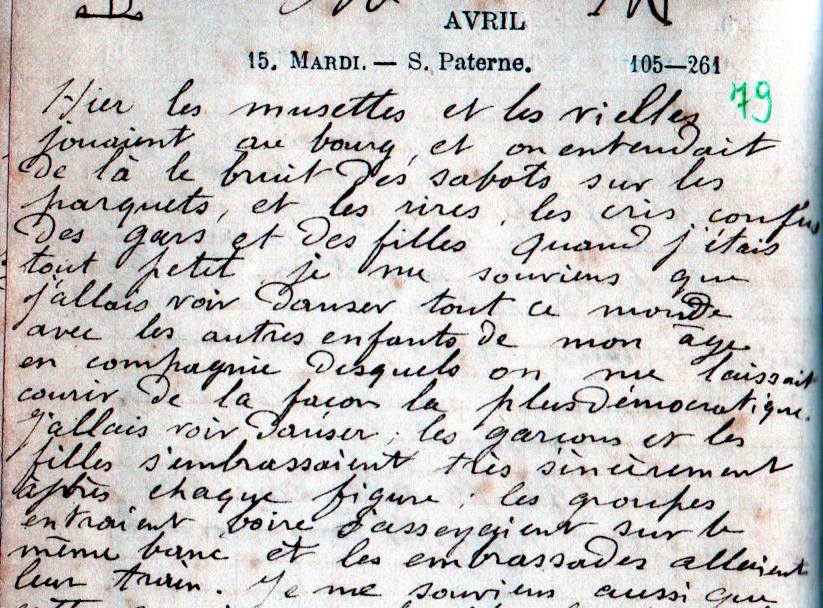 AVRIL
15. MARDI. — S. Paterne. 105—261
79
Hier les musettes et les vielles
jouaient au bourg, et on entendait
de là le bruit des sabots sur les
parquets, et les rires, les cris confus
des gars et des filles quand j'étais
tout petit je me souviens que
j'allais voir danser tout ce monde
avec les autres enfants de mon âge
en compagnie desquels on me laissait
courir de la façon la plus démocratique.
J'allais voir danser ; les garçons et les
filles s'embrassaient très sincèrement
après chaque figure ; les groupes
entraient boire s'asseyaient sur le
même banc et les embrassades allaient
leur train. Je me souviens aussi que